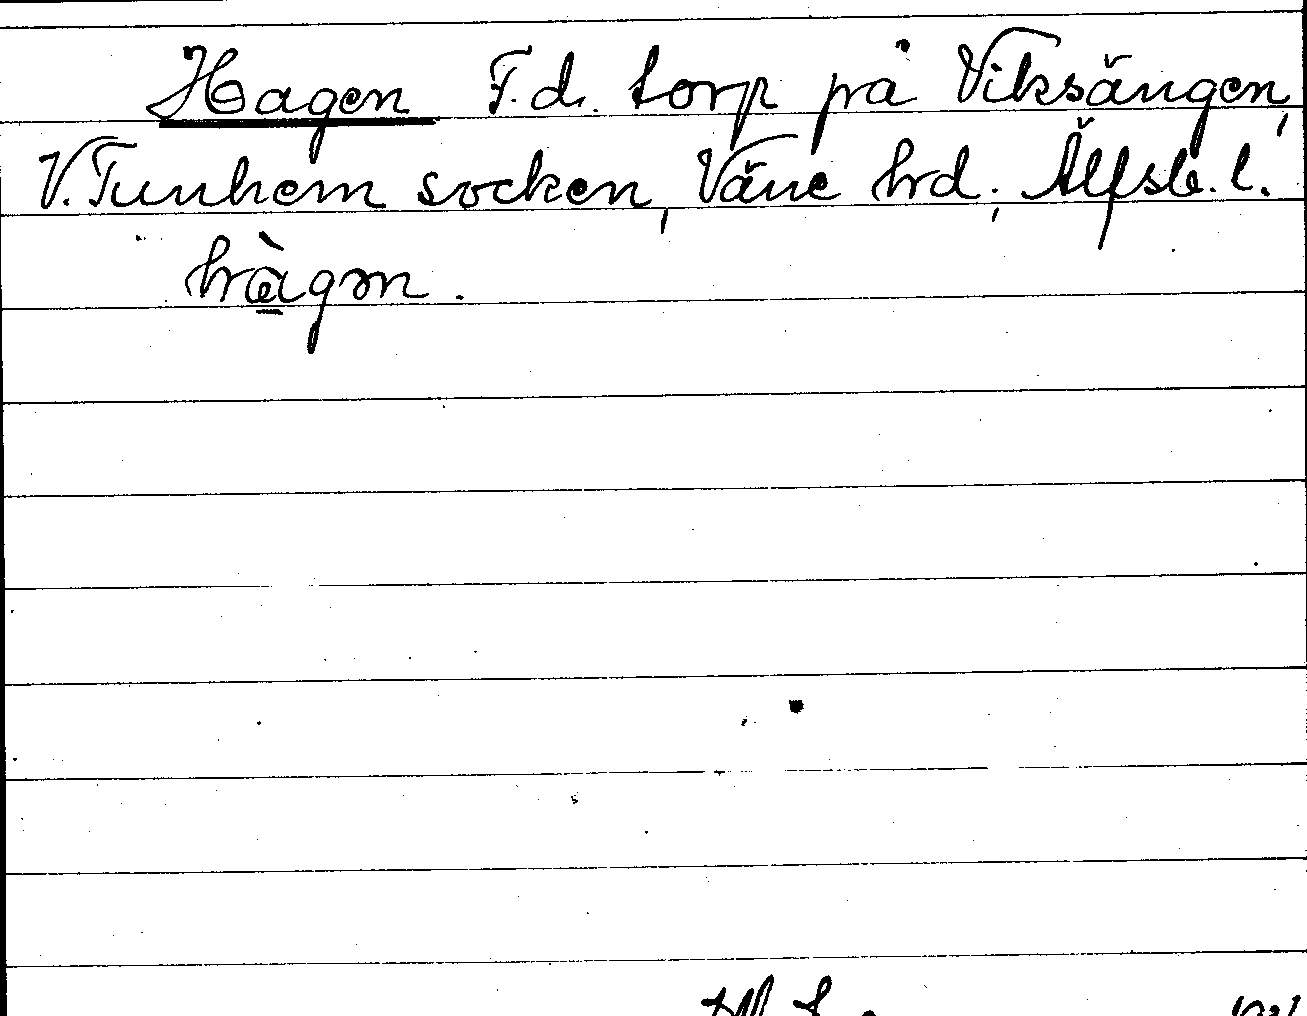 Hagen F.d. torp på Viksängen,
V. Tunhem socken, Väne hrd; Älfsb. l.
hàgən.